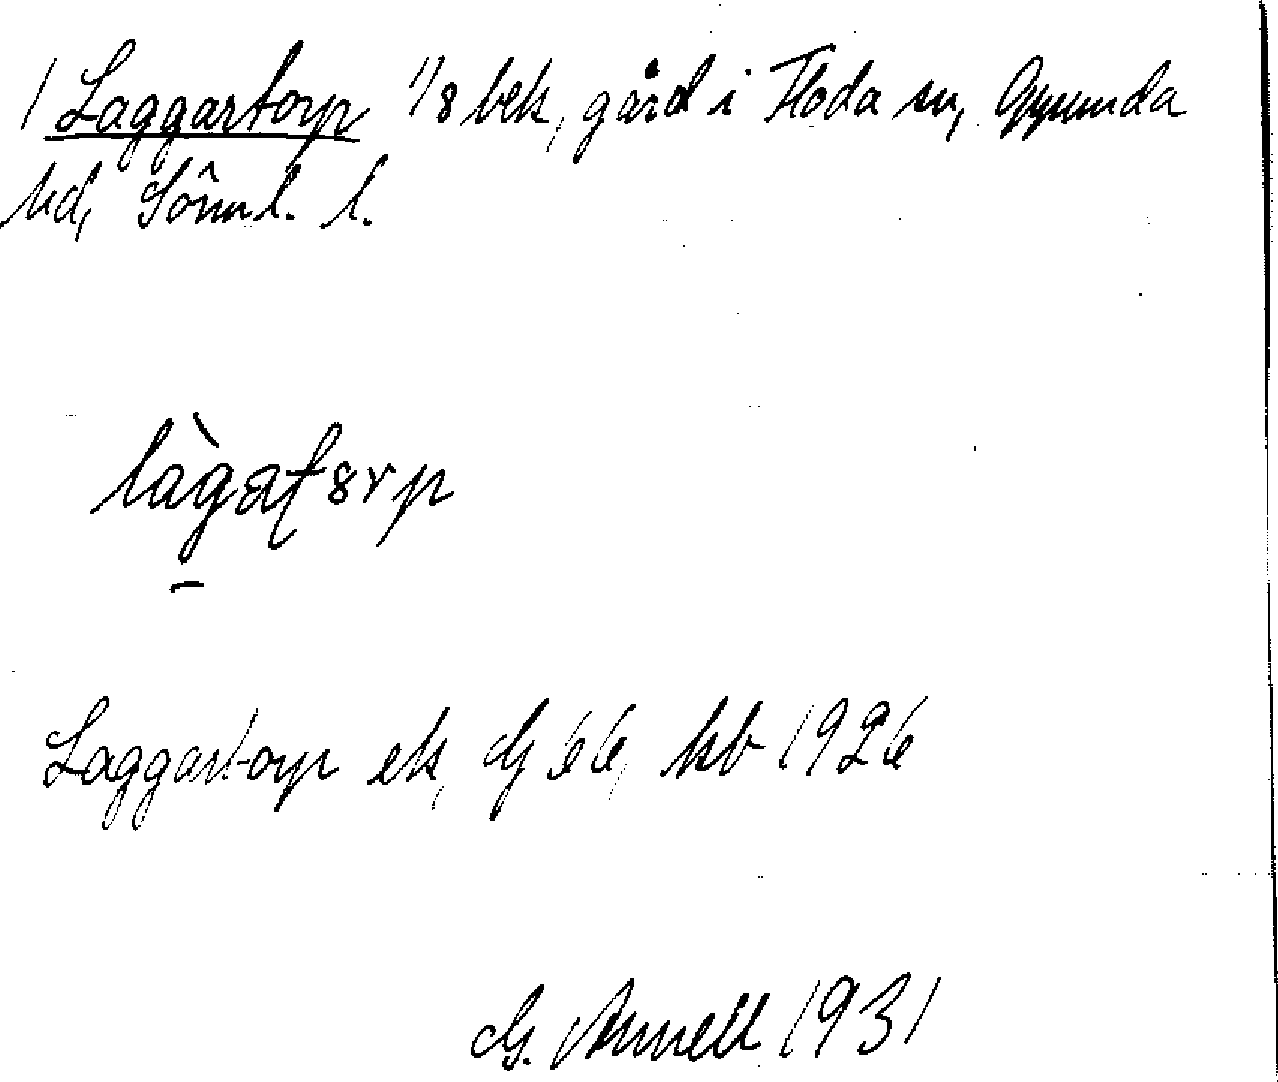 1 Laggartorp 1/8 bek, gård i Floda sn, Oppunda
hd, Sörml. l.
làgaʈsrp
Laggartorp ek, G 66, kb 1926
G. Annell 1931